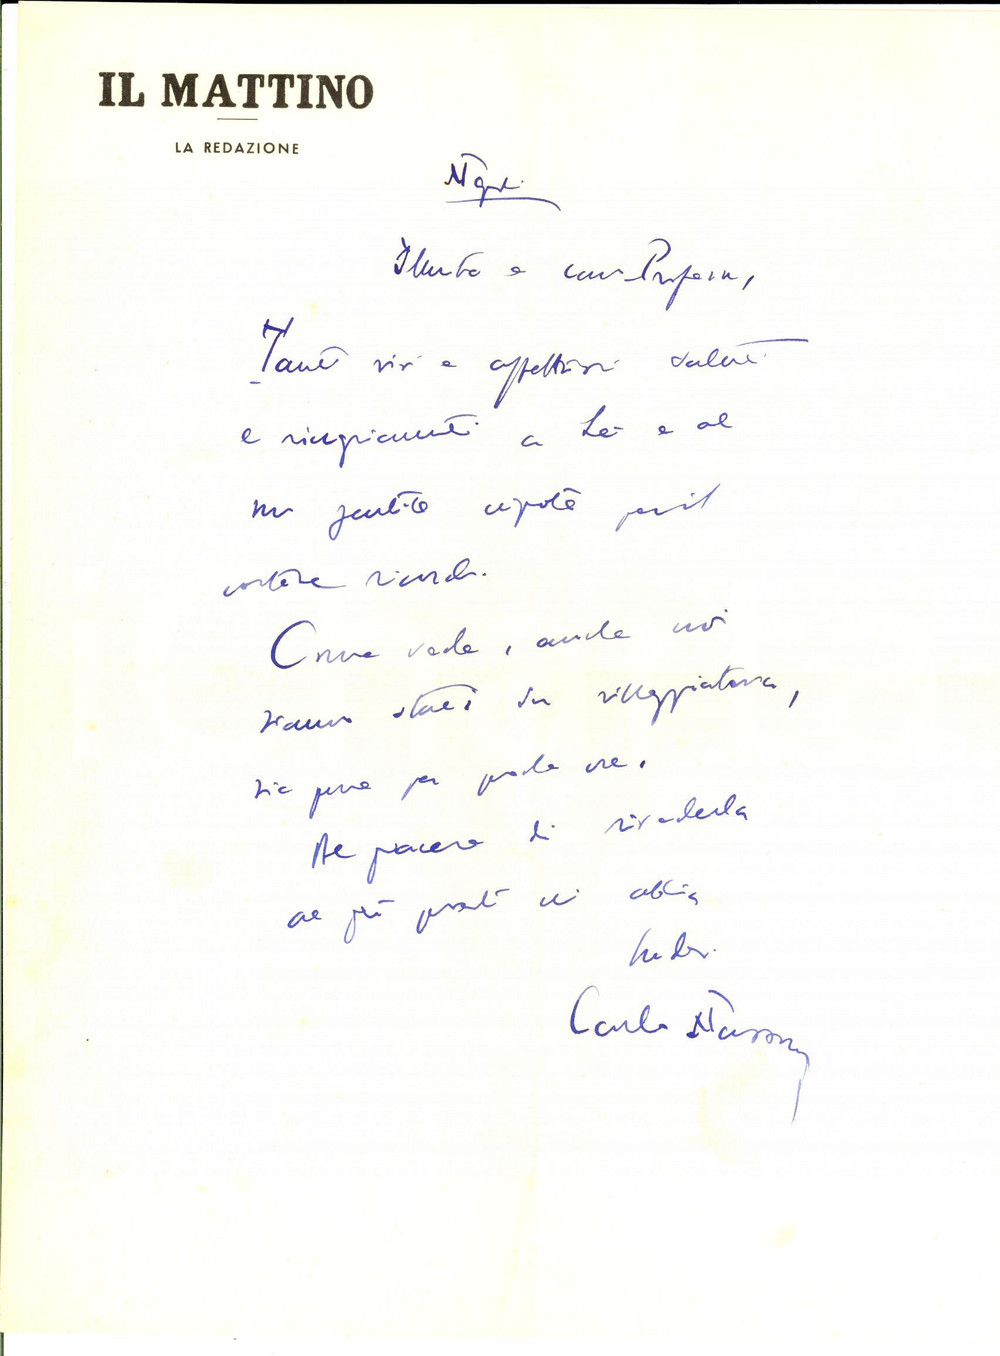 IL MATTINO
LA REDAZIONE
Napoli
Illustre e caro Professore,
Tanti vivi e affettuosi saluti
e ringraziamenti a Lei e al
suo gentile nipote per il
cortese ricordo.
Come vede, anche noi
siamo stati in villeggiatura,
sia pure per poche ore.
Al piacere di rivederla
al più presto mi abbia
Carlo Nazzaro